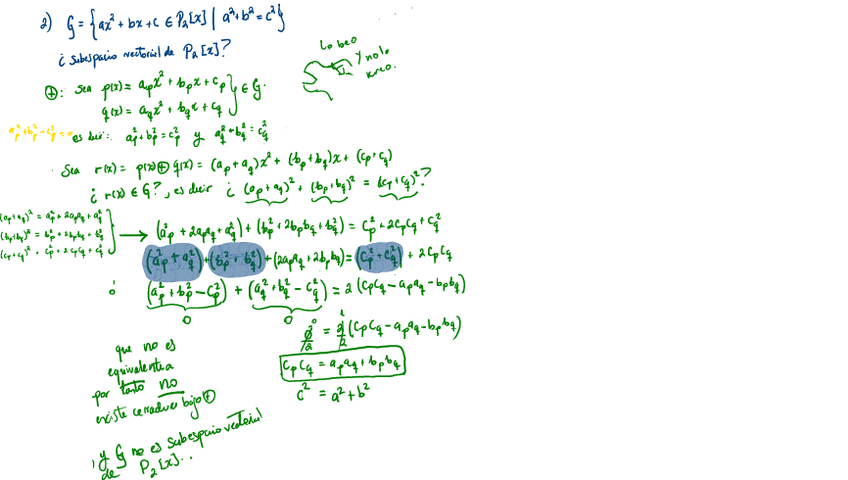 2) G = {ax² + bx + c ∈ P₂[x] | a² + b² = c²}
¿ subespacio vectorial de P₂[x]?
Lo veo
y no lo
creo.
⊕: Sea p(x) = aₚx² + bₚx + cₚ } ∈ G.
q(x) = a_q x² + b_q x + c_q
aₚ² + bₚ² - cₚ² = 0
es decir: aₚ² + bₚ² = cₚ² y a_q² + b_q² = c_q²
Sea r(x) = p(x) ⊕ q(x) = (aₚ + a_q)x² + (bₚ + b_q)x + (cₚ + c_q)
¿ r(x) ∈ G?, es decir ¿ (aₚ + a_q)² + (bₚ + b_q)² = (cₚ + c_q)²?
(aₚ + a_q)² = aₚ² + 2aₚa_q + a_q²
(bₚ + b_q)² = bₚ² + 2bₚb_q + b_q²
(cₚ + c_q)² = cₚ² + 2cₚc_q + c_q²
→ (aₚ² + 2aₚa_q + a_q²) + (bₚ² + 2bₚb_q + b_q²) = cₚ² + 2cₚc_q + c_q²
(aₚ² + a_q²) + (bₚ² + b_q²) + (2aₚa_q + 2bₚb_q) = (cₚ² + c_q²) + 2cₚc_q
(aₚ² + bₚ² - cₚ²) + (a_q² + b_q² - c_q²) = 2(cₚc_q - aₚa_q - bₚb_q)
0 0
0/2 = 2/2 (cₚc_q - aₚa_q - bₚb_q)
cₚc_q = aₚa_q + bₚb_q
c² = a² + b²
que no es
equivalente a
por tanto no
existe cerradura bajo ⊕
y G no es subespacio vectorial
de P₂[x]..